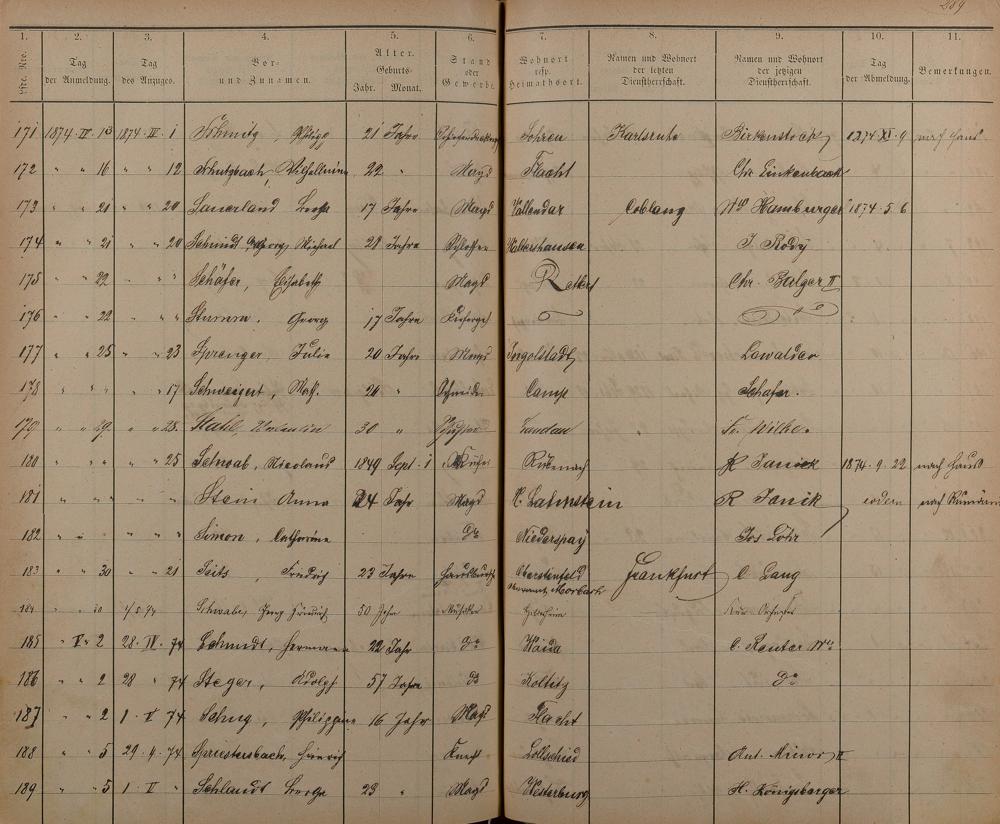 289
1. 2. 3. 4. 5. 6. 7. 8. 9. 10. 11.
Lfde. Nro. Tag der Anmeldung. Tag des Anzuges. Vor- und Zunamen. Alter. Geburts- Jahr. Monat. Stand oder Gewerbe. Wohnort resp. Heimathsort. Namen und Wohnort der letzten Dienstherrschaft. Namen und Wohnort der jetzigen Dienstherrschaft. Tag der Abmeldung. Bemerkungen.
171 1874 IV 13 1874 IV 1 Schmitz, Philipp 21 Jahre Sohren Karlsruhe Birkenstock 1874 XI 9 nach Haus
172 " " 16 " " 12 22 " Magd Flacht Chr. Linkenbach
173 " " 21 " " 20 Sauerland 17 Jahre Magd Vallendar Coblenz Wwe Hamburger 1874 5. 6
174 " " 21 " " 20 Schmidt Georg Michael 21 Jahre Schlosser J. Rody
175 " " 22 " " " Schäfer, Elisabeth Magd Rettert Chr. Balzer II
176 " " 22 " " " Stumm, Georg 17 Jahre
177 " " 25 " " 23 Sprenger, Julie 20 Jahre Magd Ingolstadt Lawalder
178 " " " " " 17 Schweigert, 26 " Schneider Camp Schäfer.
179 " " 29 " " 28 Stahl, Valentin 30 " Landau Fr. Wilhe
180 " " " " " 25 Schwab, Nicolaus 1849 Sept. 1 Rübenach R Janick 1874. 9. 22 nach Haus
181 " " " " " " Stein Anna 24 Jahr Magd N. Lahnstein R Janik eodem nach
182 " " " " " " Simon, Catharina do Niederspay Jos Löhr
183 " " 30 " " 21 Seitz, Friedrich 23 Jahre Hausbursche Oberstenfeld Frankfurt C Lang
184 " " 30 4/5 74 Schwabe, Friedrich 50 Jahr Musiker Kur Orchester
185 " V 2 28. IV. 74 Schmidt, Hermann 22 Jahr do Waida C. Reuter Wwe
186 " " 2 28 " 74 Steger, Adolf 57 Jahre do Kolditz do
187 " " 2 1 V 74 Schug, Philippine 16 Jahr Magd Flacht
188 " " 5 29. 4. 74 Spriestersbach, Heinrich Knecht Lollschied Ant. Minor II
189 " " 5 1 V " Schlandt 23 " Magd Westerburg H. Königsberger